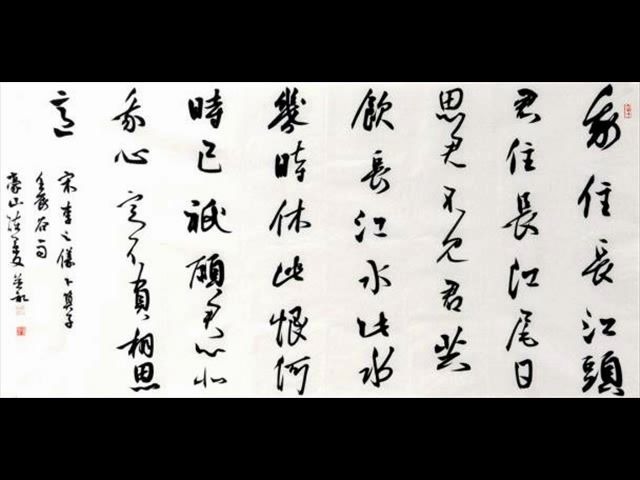 我住長江頭
君住長江尾日
思君不見君共
飲長江水此水
幾時休此恨何
時已祇願君心似
我心定不負相思
意
宋李之儀卜算子